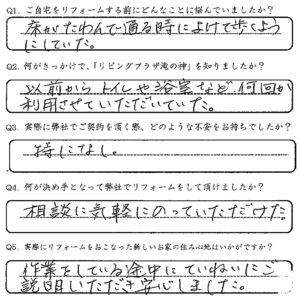 Q1. ご自宅をリフォームする前にどんなことに悩んでいましたか？
床がたわんで通る時によけて歩くよう
にしていた。
Q2. 何がきっかけで、「リビングプラザ滝の神」を知りましたか？
以前から、トイレや浴室など何回か
利用させていただいていた。
Q3. 実際に弊社でご契約を頂く際、どのような不安をお持ちでしたか？
特になし。
Q4. 何が決め手となって弊社でリフォームをして頂けましたか？
相談に気軽にのっていただけた
Q5. 実際にリフォームをおこなった新しいお家の住み心地はいかがですか？
作業をしている途中にていねいにご
説明いただき安心しました。